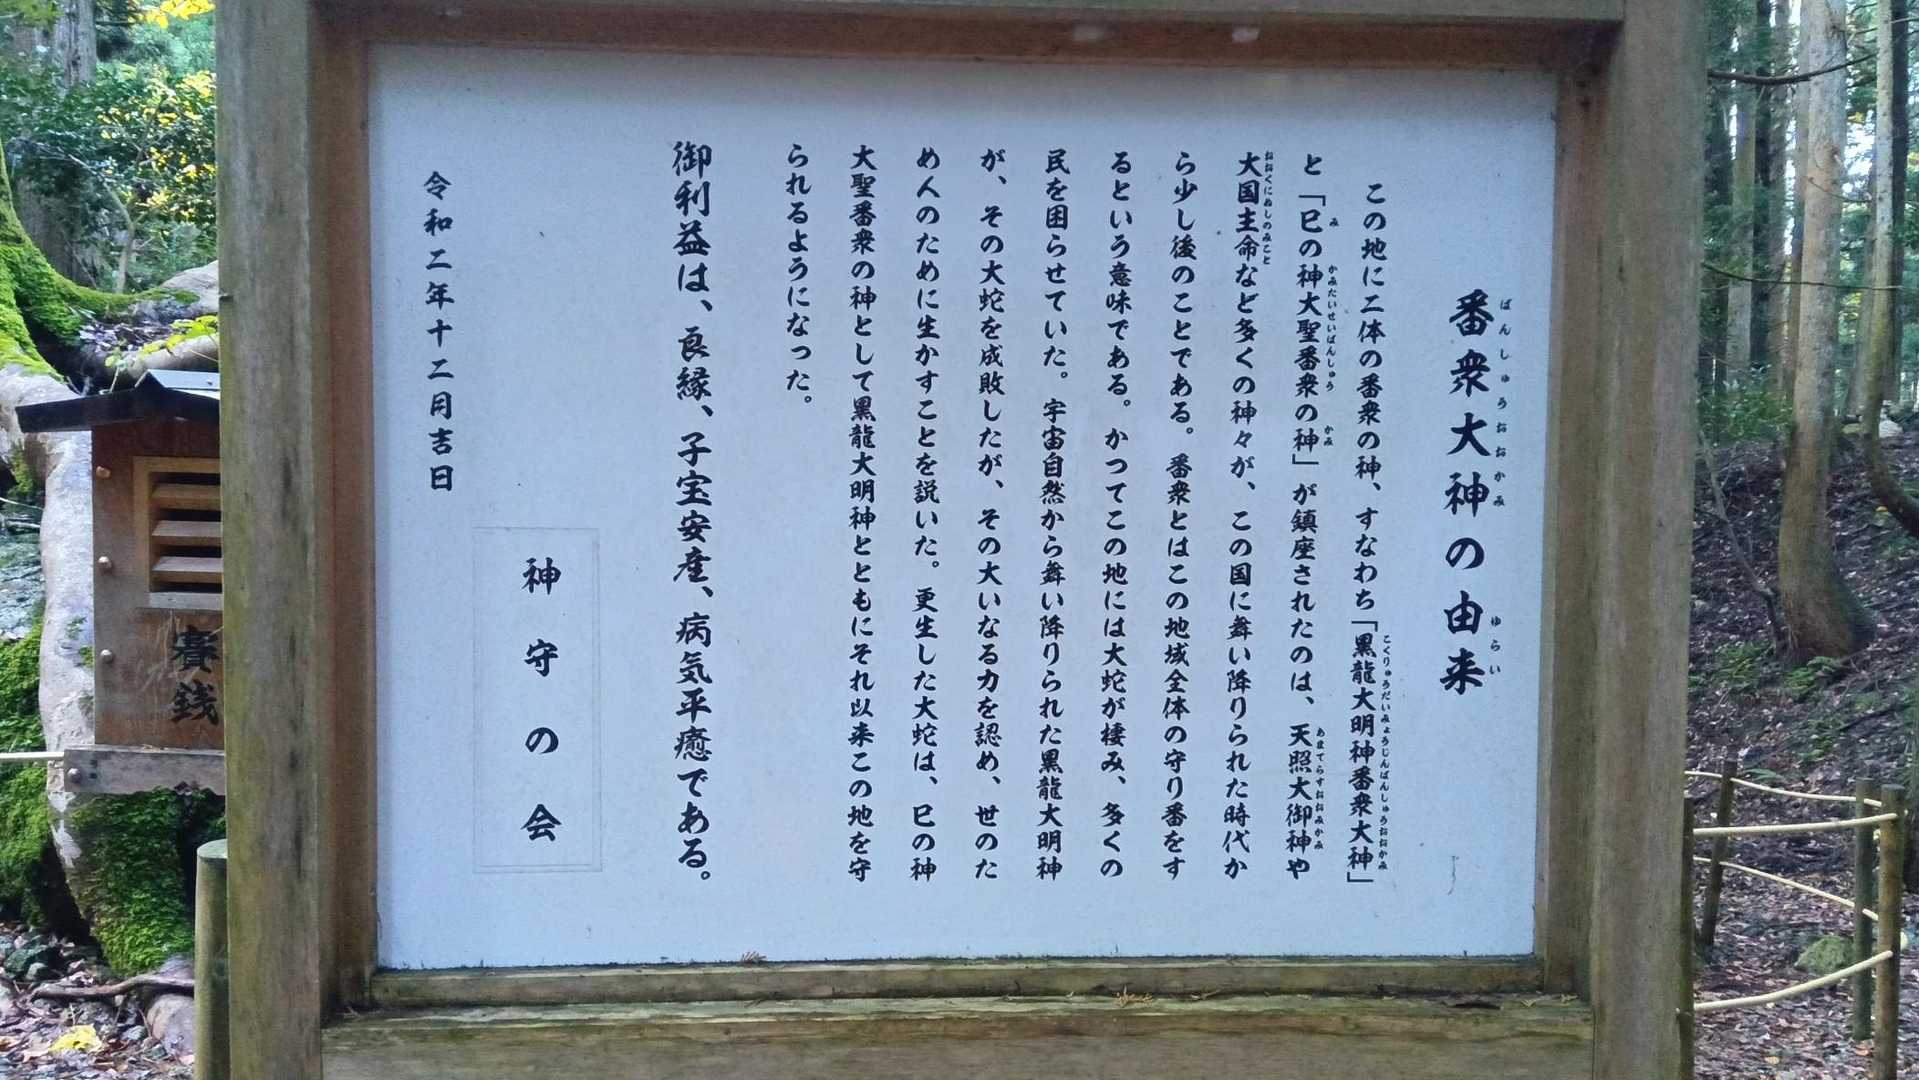 番衆大神の由来
ばんしゅうおおかみ
ゆらい
この地に二体の番衆の神、すなわち「黒龍大明神番衆大神」
こくりゅうだいみょうじんばんしゅうおおかみ
と「巳の神大聖番衆の神」が鎮座されたのは、天照大御神や
み
かみたいせいばんしゅう
かみ
あまてらすおおみかみ
大国主命など多くの神々が、この国に舞い降りられた時代か
おおくにぬしのみこと
ら少し後のことである。番衆とはこの地域全体の守り番をす
るという意味である。かつてこの地には大蛇が棲み、多くの
民を困らせていた。宇宙自然から舞い降りられた黒龍大明神
が、その大蛇を成敗したが、その大いなる力を認め、世のた
め人のために生かすことを説いた。更生した大蛇は、巳の神
大聖番衆の神として黒龍大明神とともにそれ以来この地を守
られるようになった。
御利益は、良縁、子宝安産、病気平癒である。
神守の会
令和二年十二月吉日
賽銭